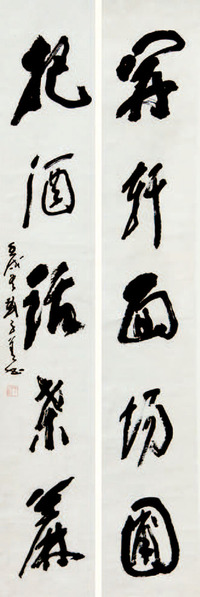 開軒面場圃
把酒話桑麻
壬戌